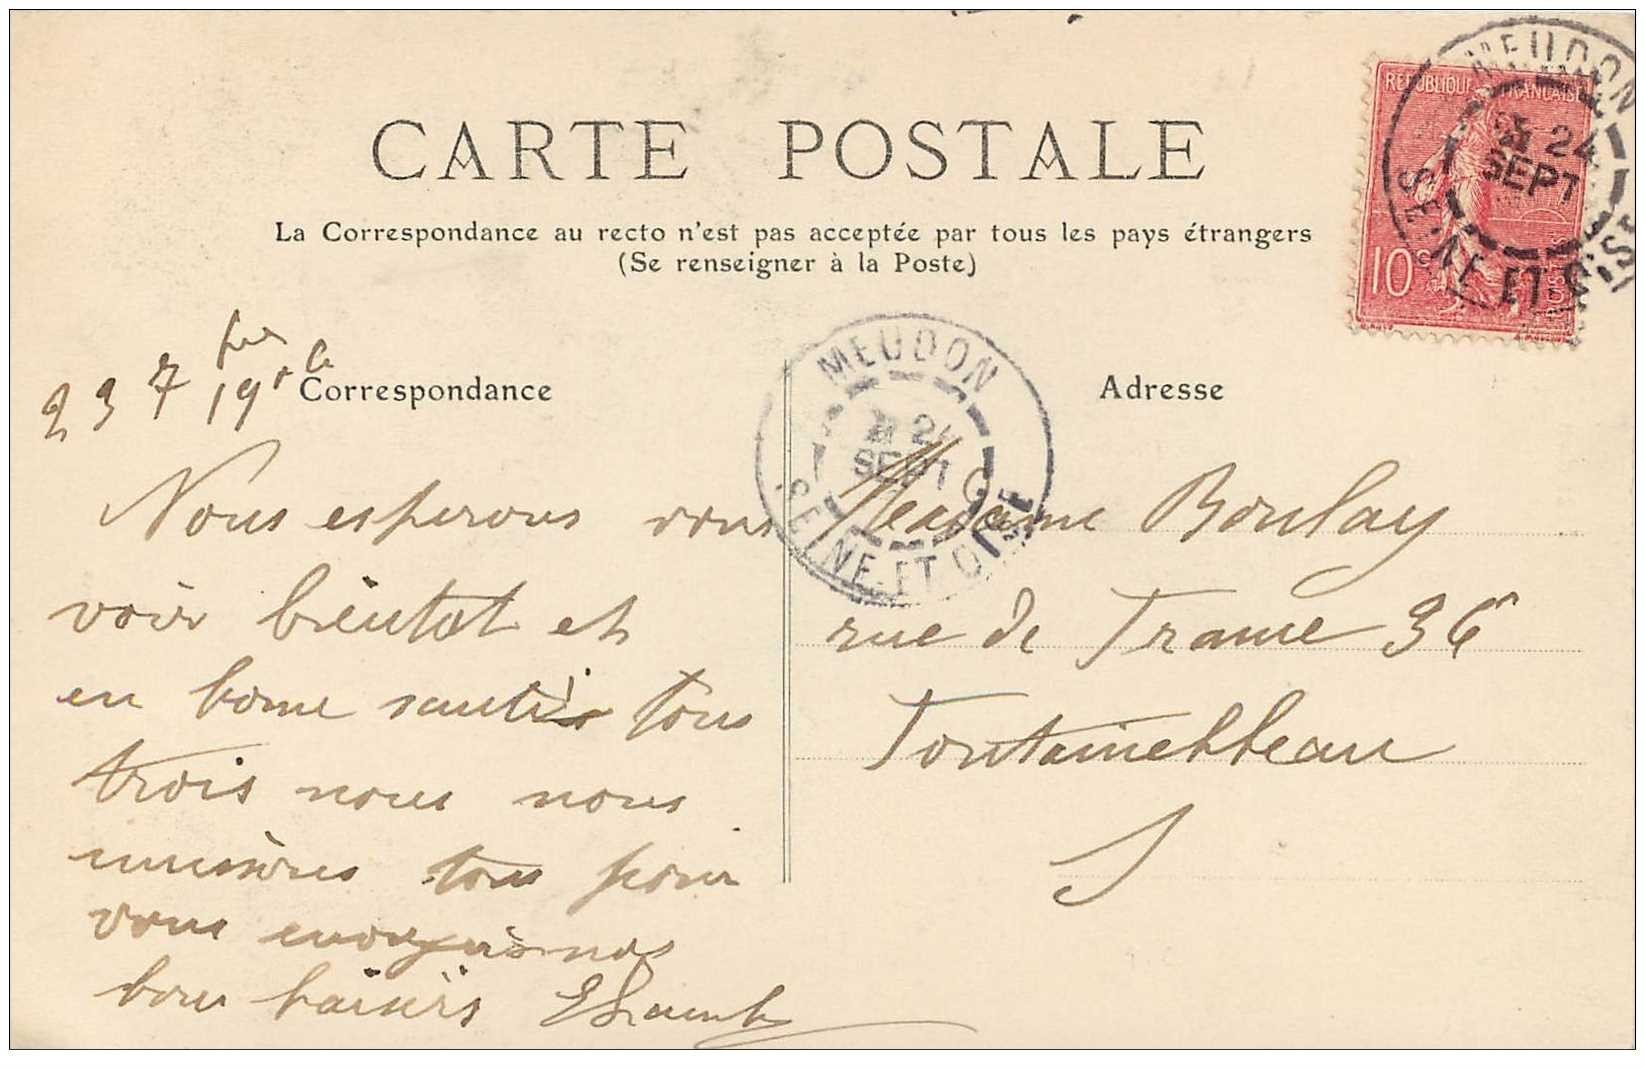 CARTE POSTALE
La Correspondance au recto n'est pas acceptée par tous les pays étrangers
(Se renseigner à la Poste)
REPUBLIQUE FRANCAISE
10c
MEUDON
24
SEPT
SEINE-ET-OISE
23 7
Correspondance
Nous esperons vous
voir bientot et
en bonne santé tous
trois nous nous
tous pour
vous envoyer nos
bons baisers
MEUDON
24
SEPT
SEINE-ET-OISE
Adresse
Madame Boulay
rue de France 36
Fontainebleau